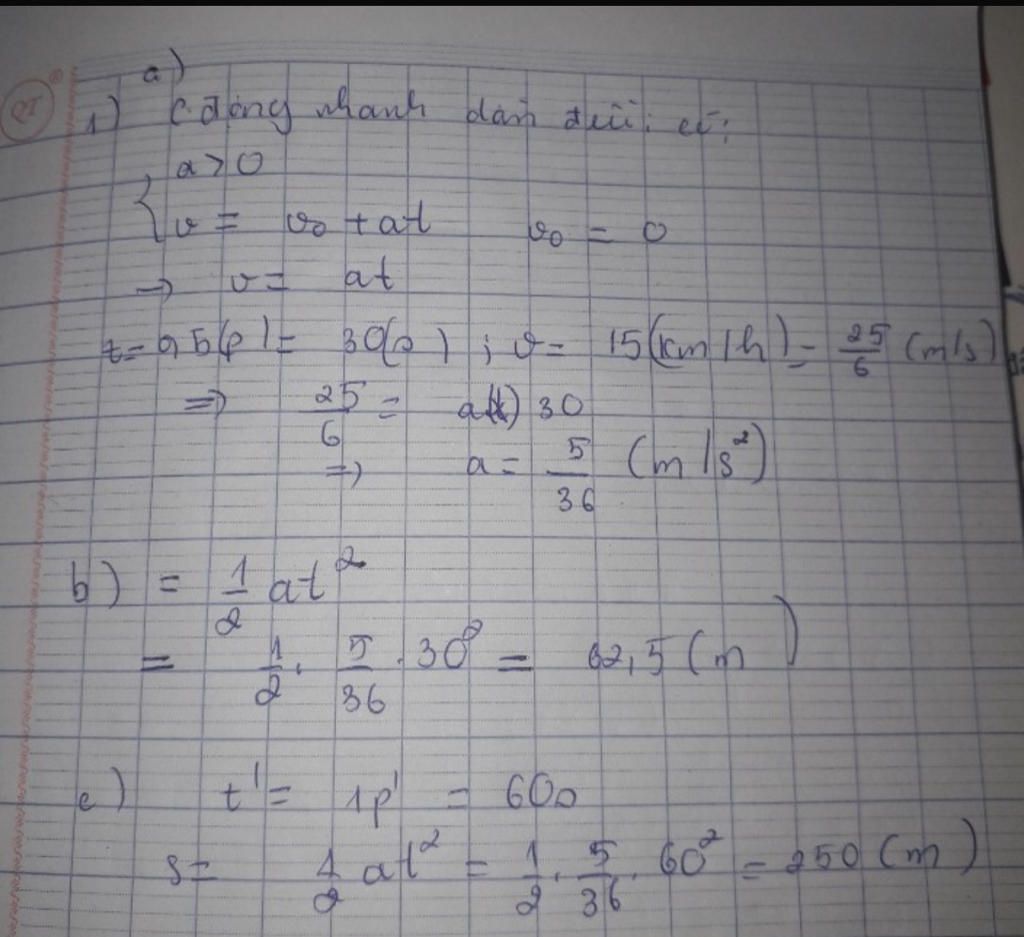 a)
1) C. động nhanh dần đều: có:
{ a > 0
v = v₀ + at   v₀ = 0
→ v = at
t = 0,5(p) = 30(s) ; v = 15(km/h) = 25/6 (m/s)
⇒ 25/6 = a 30
⇒ a = 5/36 (m/s²)
b) = 1/2 at²
= 1/2 . 5/36 . 30² = 62,5 (m)
c) t' = 1p' = 60s
s = 1/2 at² = 1/2 . 5/36 . 60² = 250 (m)